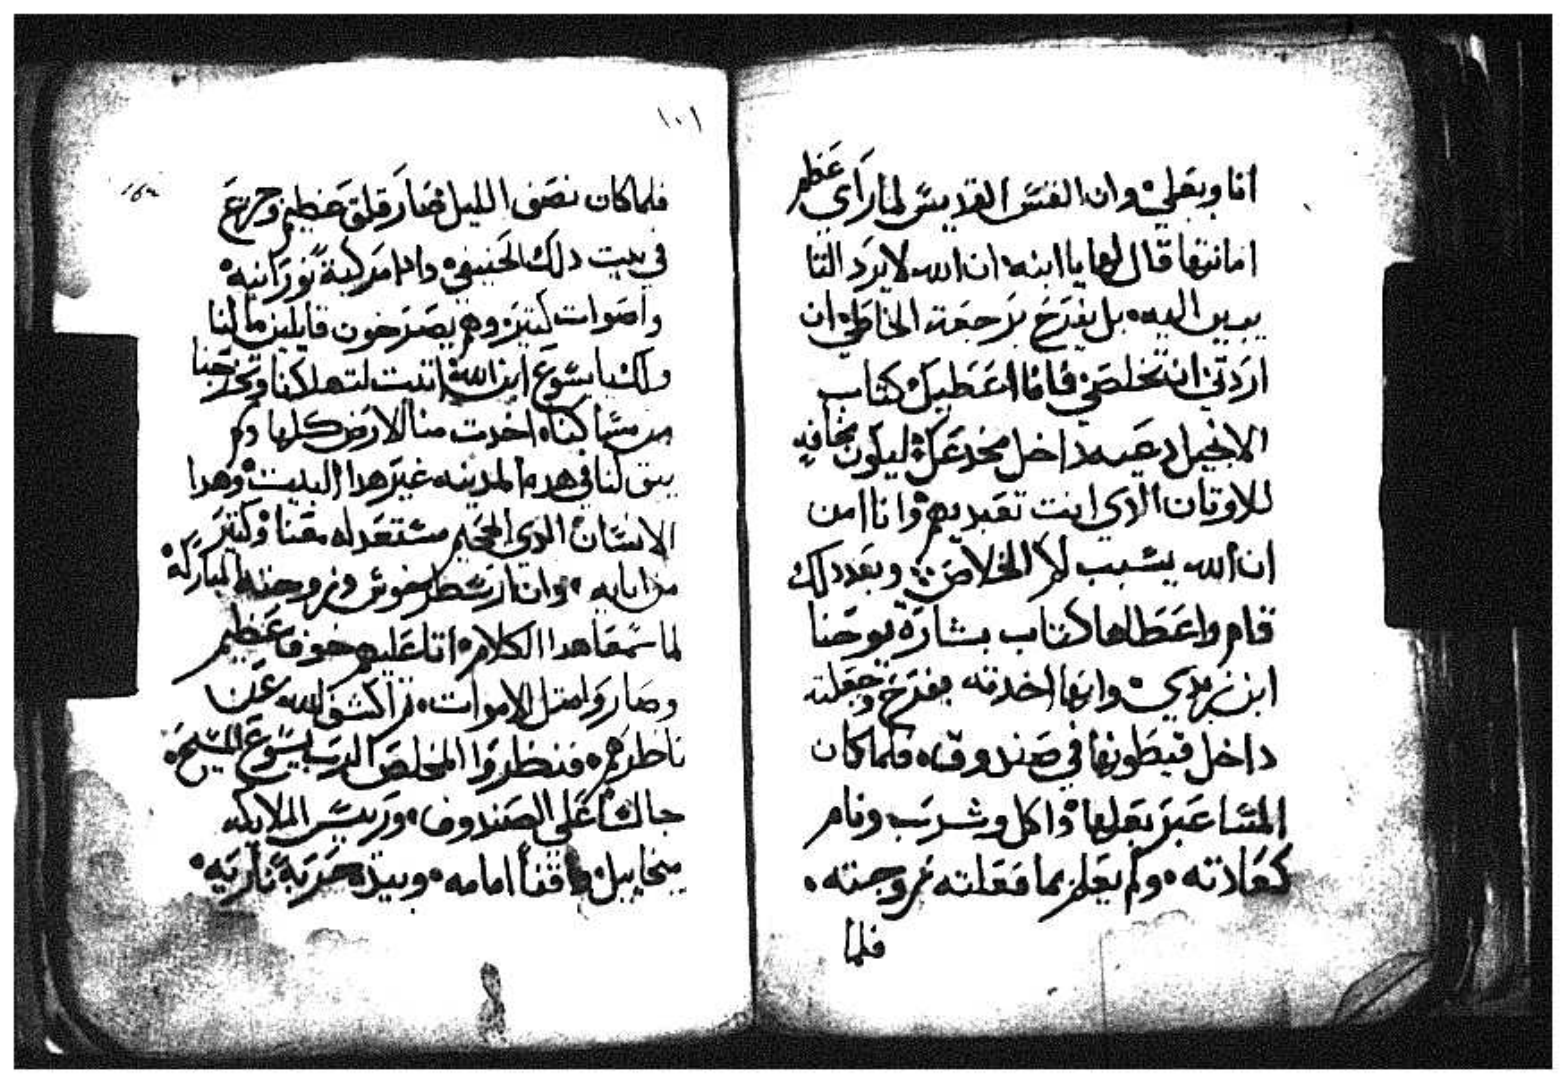 انا وبعلي وان القس القديس لما راي عظم
امانتها قال لها يا ابنه ان الله لا يرد التا
يبين اليه بل يفرح برجعة الخاطي ان
اردتي ان تخلصي فانا اعطيك كتاب
الانجيل دعيه داخل مخدعك ليكون
للاوتان الدي انت تعبديهم وانا امن
ان الله يسبب لكم الخلاص وبعد دلك
قام واعطاها كتاب بشارة يوحنا
ابن زبدي وانها اخدته بفرح وجعلته
داخل قيطونها في صندوق فلما كان
المسا عبر بعلها واكل وشرب ونام
كعادته ولم يعلم بما فعلته زوجته
فلما
١٠١
فلما كان نصف الليل صار قلق عظيم وجزع
في بيت دلك الحنيفي وادا مركبة نورانية
واصوات كتيره وهم يصرخون قايلين ما لنا
ولك يا يسوع ابن الله اتيت لتهلكنا وتخرجنا
من مساكننا اخدت منا الارض كلها ولم
يبق لنا في هده المدينه غير هدا البيت وهدا
الانسان الدي مستعد له معنا وكتير
من ابايه وان ارسطرخوس وزوجته المباركة
لما سمعا هدا الكلام اتا عليهم خوفا عظيم
وصاروا متل الاموات تم اكشف الله عن
ناظرهم فنظروا المخلص الرب يسوع المسيح
جالسا على الصندوق وريس الملايكه
ميخاييل واقفا امامه وبيده حربة نارية